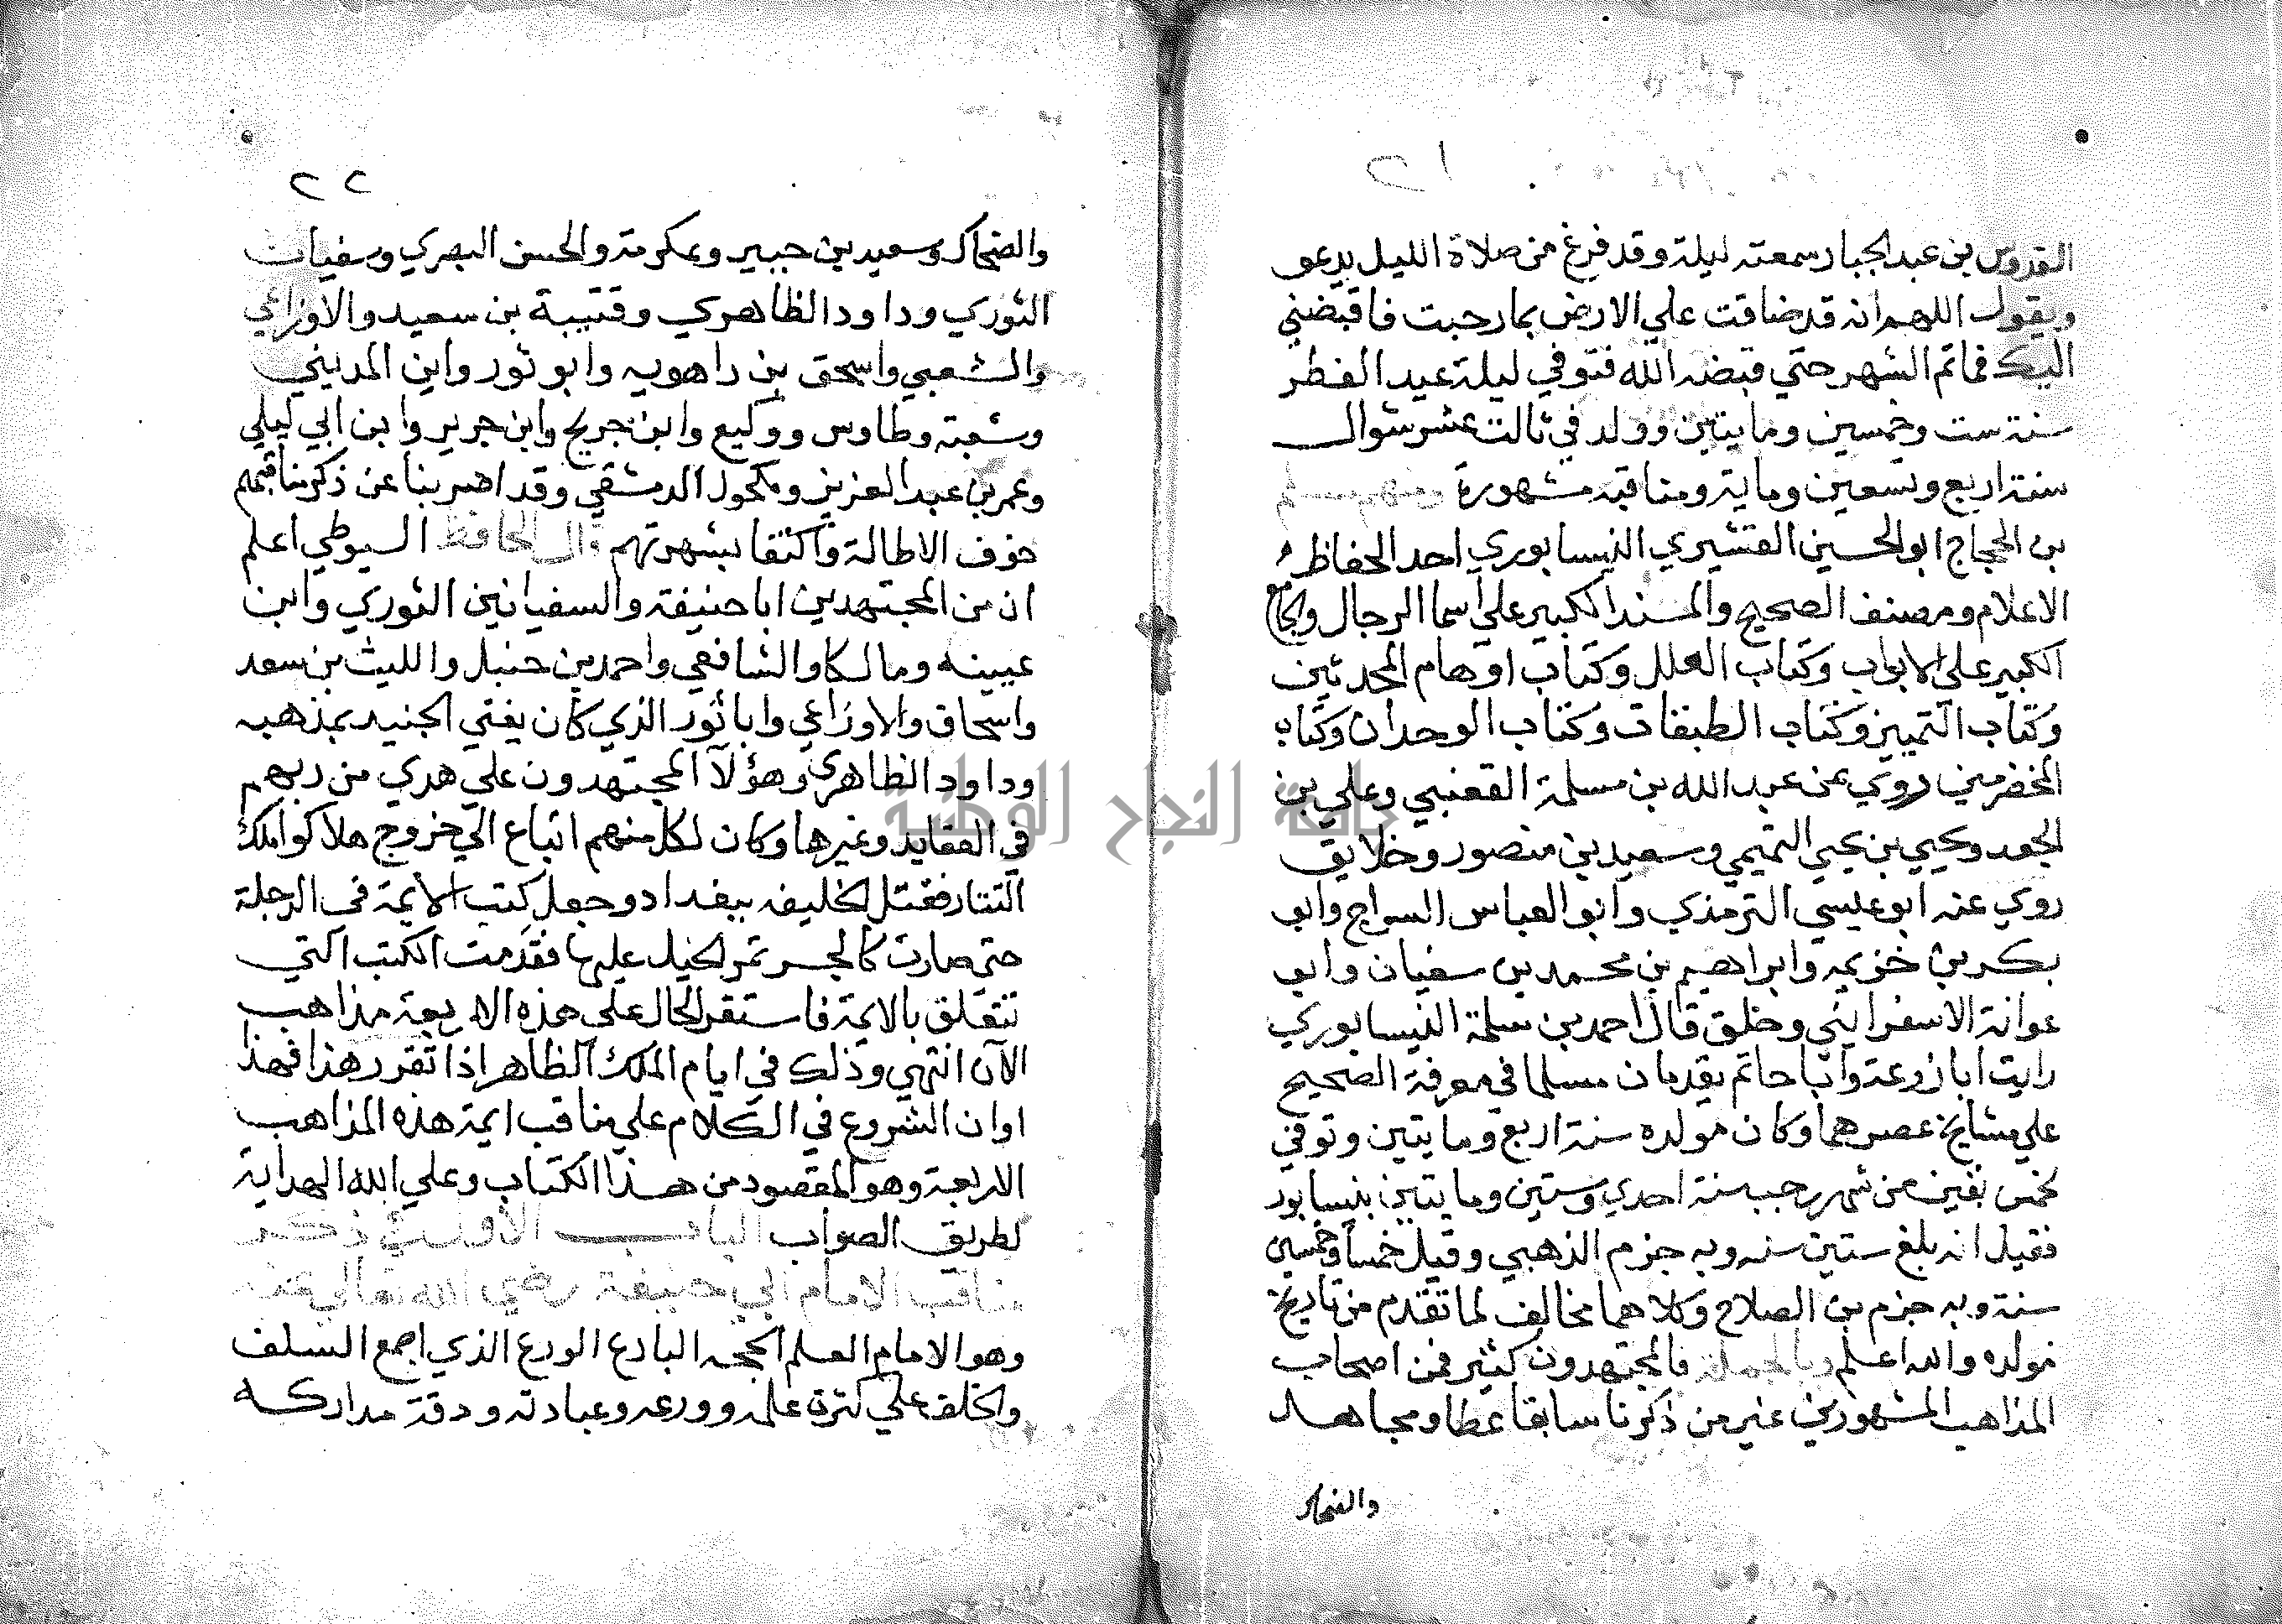 ٢١
القدوس بن عبد الجبار سمعته ليلة وقد فرغ من صلاة الليل يدعو
ويقول اللهم انه قد ضاقت علي الارض بما رحبت فاقبضني
اليك فما تم الشهر حتي قبضه الله فتوفي ليلة عيد الفطر
سنة ست وخمسين ومايتين وولد في ثالث عشر شوال
سنة اربع وتسعين وماية ومناقبه مشهورة ومنهم مسلم
بن الحجاج ابو الحسين القشيري النيسابوري احد الحفاظ
الاعلام ومصنف الصحيح والمسند الكبير علي اسما الرجال والجامع
الكبير علي الابواب وكتاب العلل وكتاب اوهام المحدثين
وكتاب التمييز وكتاب الطبقات وكتاب الوحدان وكتاب
المخضرمين روي عن عبد الله بن مسلمة القعنبي وعلي بن
الجعد ويحيي بن يحيي التميمي وسعيد بن منصور وخلايق
روي عنه ابو عيسي الترمذي وابو العباس السراج وابو
بكر بن خزيمه وابراهيم بن محمد بن سفيان وابو
عوانة الاسفرايني وخلق قال احمد بن سلمة النيسابوري
رايت ابا زرعة وابا حاتم يقدمان مسلما في معرفة الصحيح
علي مشايخ عصرهما وكان مولده سنة اربع ومايتين وتوفي
لخمس بقين من شهر رجب سنة احدي وستين ومايتين بنيسابور
فقيل انه بلغ ستين سنه وبه جزم الذهبي وقيل خمسا وخمسين
سنة وبه جزم بن الصلاح وكلاهما مخالف لما تقدم من تاريخ
مولده والله اعلم وبالجملة فالمجتهدون كثير فمن اصحاب
المذاهب المشهورين غير من ذكرنا سابقا عطا ومجاهد
والضحاك
٢٢
والضحاك وسعيد بن جبير وعكرمة والحسن البصري وسفيان
الثوري وداود الظاهري وقتيبة بن سعيد والاوزاعي
والشعبي واسحق بن راهويه وابو ثور وابن المديني
وشعبة وطاوس ووكيع وابن جريج وابن جرير وابن ابي ليلي
وعمر بن عبد العزيز ومكحول الدمشقي وقد اضربنا عن ذكر مناقبهم
خوف الاطالة واكتفا بشهرتهم قال الحافظ السيوطي اعلم
ان من المجتهدين ابا حنيفة والسفيانين الثوري وابن
عيينه ومالكا والشافعي واحمد بن حنبل والليث بن سعد
واسحاق والاوزاعي وابا ثور الذي كان يفتي الجنيد بمذهبه
وداود الظاهري وهؤلآ المجتهدون علي هدي من ربهم
في العقايد وغيرها وكان لكل منهم اتباع الي خروج هلاكو املك
التتار فقتل الخليفه ببغداد وجعل كتب الأيمة في الدجلة
حتي صارت كالجسر تمر الخيل عليها فقدمت الكتب التي
تتعلق بالايمة فاستقر الحال علي هذه الاربعة مذاهب
الآن انتهي وذلك في ايام الملك الظاهر اذا تقرر هذا فهذا
اوان الشروع في الكلام علي مناقب ايمة هذه المذاهب
الاربعة وهو المقصود من هذا الكتاب وعلي الله الهداية
لطريق الصواب الباب الأول في ذكر
مناقب الامام ابي حنيفة رضي الله تعالي عنه
وهو الامام العلم الحجه البارع الورع الذي اجمع السلف
والخلف علي كثرة علمه وورعه وعبادته ودقة مداركه
جامعة النجاح الوطنية